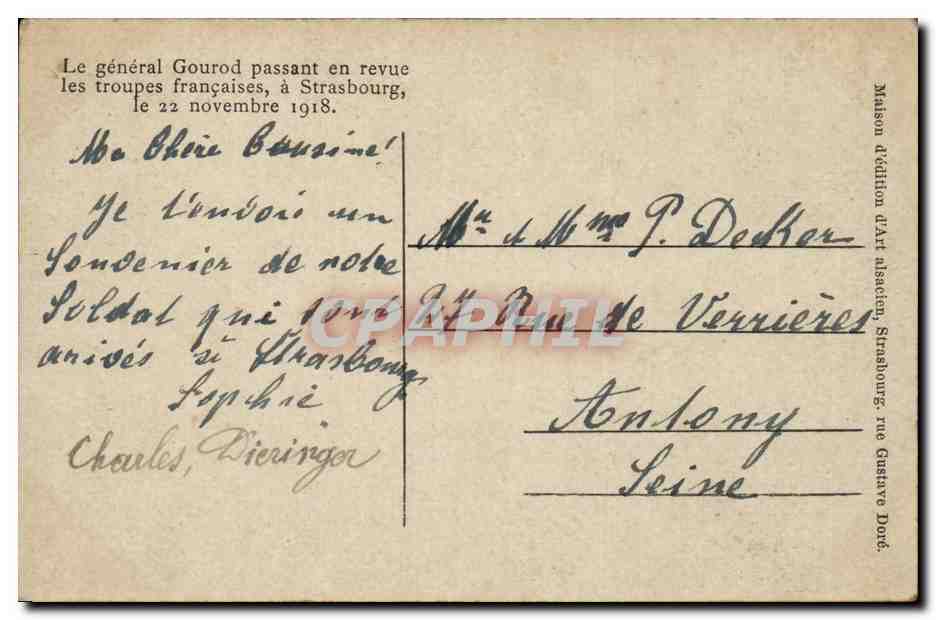 Le général Gourod passant en revue
les troupes françaises, à Strasbourg,
le 22 novembre 1918.
Ma Chère Cousine!
Je t'envoie un
Souvenier de notre
Soldat qui sont
arivés à Strasbourg
Sophie
Charles, Dieringer
Mr & Mme P. Decker
27 Rue de Verrières
Antony
Seine
Maison d'édition d'Art alsacien, Strasbourg. rue Gustave Doré.
CPAPHIL